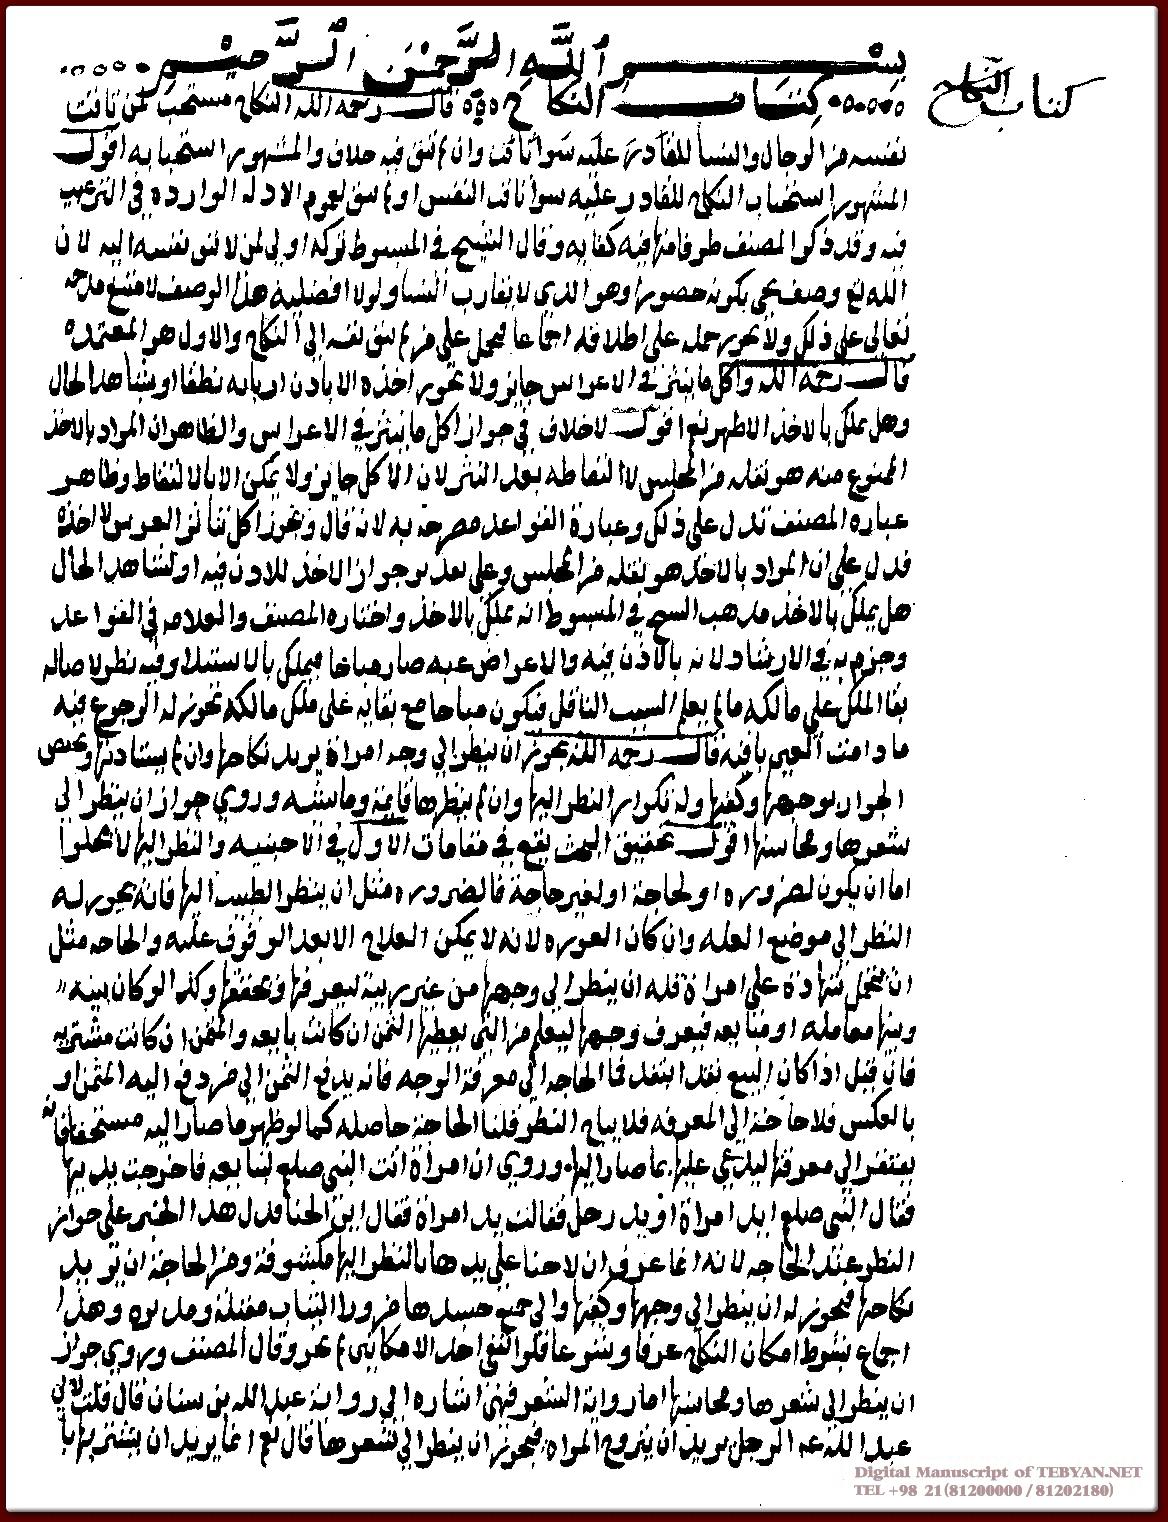 بسم الله الرحمن الرحيم
كتاب النكاح
كتاب النكاح قال رحمه الله النكاح مستحب لمن تاقت
نفسه من الرجال والنسا للقادر عليه سوا تاقت وان لم تتق فيه خلاف والمشهور استحبابه اقول
المشهور استحباب النكاح للقادر عليه سوا تاقت النفس او لم تتق لعموم الادله الوارده في الترغيب
فيه وقد ذكر المصنف طرفا منها فيه كفايه وقال الشيخ في المبسوط تركه اولى لمن لا تتوق نفسه اليه لان
الله تع وصف يحيى بكونه حصورا وهو الذي لا يقارب النسا ولولا افضليه هذا الوصف لامتنع مدحه
تعالى على ذلك ولا يجوز حمله على اطلاقه اجماعا فيحمل على من لم تتق نفسه الى النكاح والاول هو المعتمد
قال رحمه الله واكل ما ينثر في الاعراس جايز ولا يجوز اخذه الا باذن اربابه نطقا او بشاهد الحال
وهل يملك بالاخذ الاظهر نعم اقول لا خلاف في جواز اكل ما ينثر في الاعراس والظاهر ان المراد بالاخذ
الممنوع منه هو نقله من المجلس لا التقاطه بعد النثر لان الاكل جايز ولا يمكن الا بالالتقاط وظاهر
عباره المصنف تدل على ذلك وعبارة القواعد مصرحة به لانه قال ويجوز اكل نثار العرس لا اخذه
فدل على ان المراد بالاخذ هو نقله من المجلس وعلى بعد بجواز الاخذ للاذن فيه او لشاهد الحال
هل يملك بالاخذ مذهب الشيخ في المبسوط انه يملك بالاخذ واختاره المصنف والعلامه في القواعد
وجزم به في الارشاد لانه بالاذن فيه والاعراض عنه صار مباحا فيملك بالاستيلا وفيه نظر لاصاله
بقا الملك على مالكه ما لم يعلم السبب الناقل فيكون مباحا مع بقايه على ملك مالكه يجوز له الرجوع فيه
ما دامت العين باقيه قال رحمه الله يجوز ان ينظر الى وجه امراة يريد نكاحها وان لم يستاذنها ويختص
الجواز بوجهها وكفيها وله تكرار النظر اليها وان ينظرها قايمة وماشيه وروي جواز ان ينظر الى
شعرها ومحاسنها اقول تحقيق البحث يقع في مقامات الاول في الاجنبيه والنظر اليها لا يخلوا
اما ان يكون لضروره او لحاجة او لغير حاجة فالضروره مثل ان ينظر الطبيب اليها فانه يجوز له
النظر الى موضع العله وان كان العوره لانه لا يمكن العلاج الا بعد الوقوف عليه والحاجه مثل
ان يتحمل شهادة على امراة فله ان ينظر الى وجهها من غير ريبة ليعرفها ويحققها وكذا لو كان بينه
وبينها معامله او متابعه فيعرف وجهها ليعلم من التي يعطيها الثمن ان كانت بايعه والمثمن ان كانت مشتريه
فان قيل اذا كان البيع نقدا بنقد فما الحاجه الى معرفة الوجه فانه يدفع الثمن الى من دفع اليه المثمن او
بالعكس فلا حاجة الى المعرفه فلا يباح النظر قلنا الحاجة حاصله كما لو ظهر ما صار اليه مستحقا فانه
يفتقر الى معرفتها ليدعي عليها بما صار اليها وروي ان امراة اتت النبي صلع لتبايعه فاخرجت يديها
فقال النبي صلع ايد امراة او يد رجل فقالت يد امراة فقال اين الحنا فدل هذا الخبر على جواز
النظر عند الحاجه لانه انما عرف ان لا حنا على يدها بالنظر اليها مكشوفة ومن الحاجة ان يريد
نكاحها فيجوز له ان ينظر الى وجهها وكفيها والى جميع جسدها من ورا الثياب مقبلة ومدبره وهذا
اجماع بشرط امكان النكاح عرفا وشرعا فلو انتفى احد الامكانين لم يجز وقال المصنف وروي جواز
ان ينظر الى شعرها ومحاسنها اما رواية الشعر فهي اشاره الى رواية عبد الله بن سنان قال قلت لابي
عبد الله عه الرجل يريد ان يتزوج المراه فيجوز ان ينظر الى شعرها قال نعم انما يريد ان يشتريها با
Digital Manuscript of TEBYAN.NET
TEL +98 21(81200000 / 81202180)